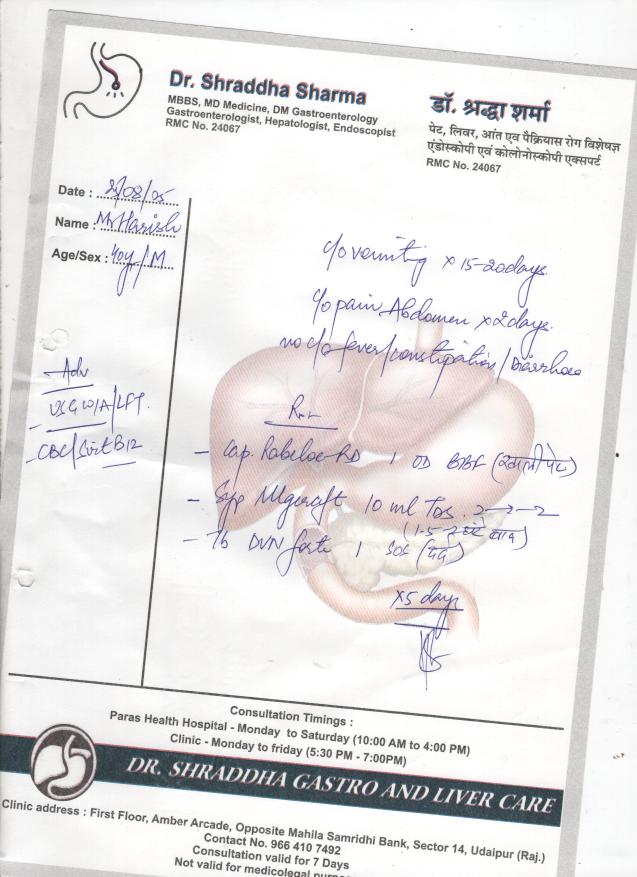 Dr. Shraddha Sharma
MBBS, MD Medicine, DM Gastroenterology
Gastroenterologist, Hepatologist, Endoscopist
RMC No. 24067
डॉ. श्रद्धा शर्मा
पेट, लिवर, आंत एव पैंक्रियास रोग विशेषज्ञ
एंडोस्कोपी एवं कोलोनोस्कोपी एक्सपर्ट
RMC No. 24067
Date : /08/
Name : Mr Harish
Age/Sex : 40y/M
c/o vomiting x 15-20days.
c/o pain Abdomen x 2days.
no c/o fever/constipation/Diarrhoea
Adv
USG W/A/LFT.
CBC/ B12
- Cap. RD 1 OD BBF (खाली पेट)
- Syp 10 ml TDS
- Tb DVN forte 1 SOS (दर्द)
x5 days
Consultation Timings :
Paras Health Hospital - Monday to Saturday (10:00 AM to 4:00 PM)
Clinic - Monday to friday (5:30 PM - 7:00PM)
DR. SHRADDHA GASTRO AND LIVER CARE
Clinic address : First Floor, Amber Arcade, Opposite Mahila Samridhi Bank, Sector 14, Udaipur (Raj.)
Contact No. 966 410 7492
Consultation valid for 7 Days
Not valid for medicolegal